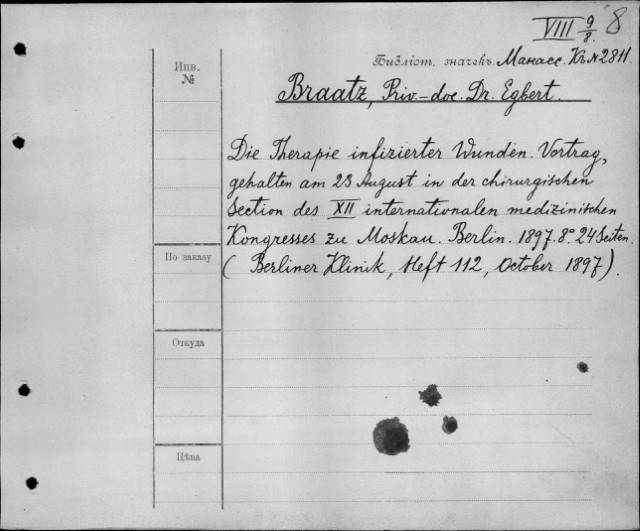 VIII 9/8. 8
Инв.
№
Библіот. значекъ. Манасс. Кг. N 2811.
Braatz, Priv.-doc. Dr. Egbert.
Die Therapie infizierter Wunden. Vortrag,
gehalten am 23 August in der chirurgischen
Section des XII internationalen medizinischen
Kongresses zu Moskau. Berlin. 1897. 8° 24 Seiten.
(Berliner Klinik, Heft 112, October 1897).
По заказу
Откуда
Цѣна